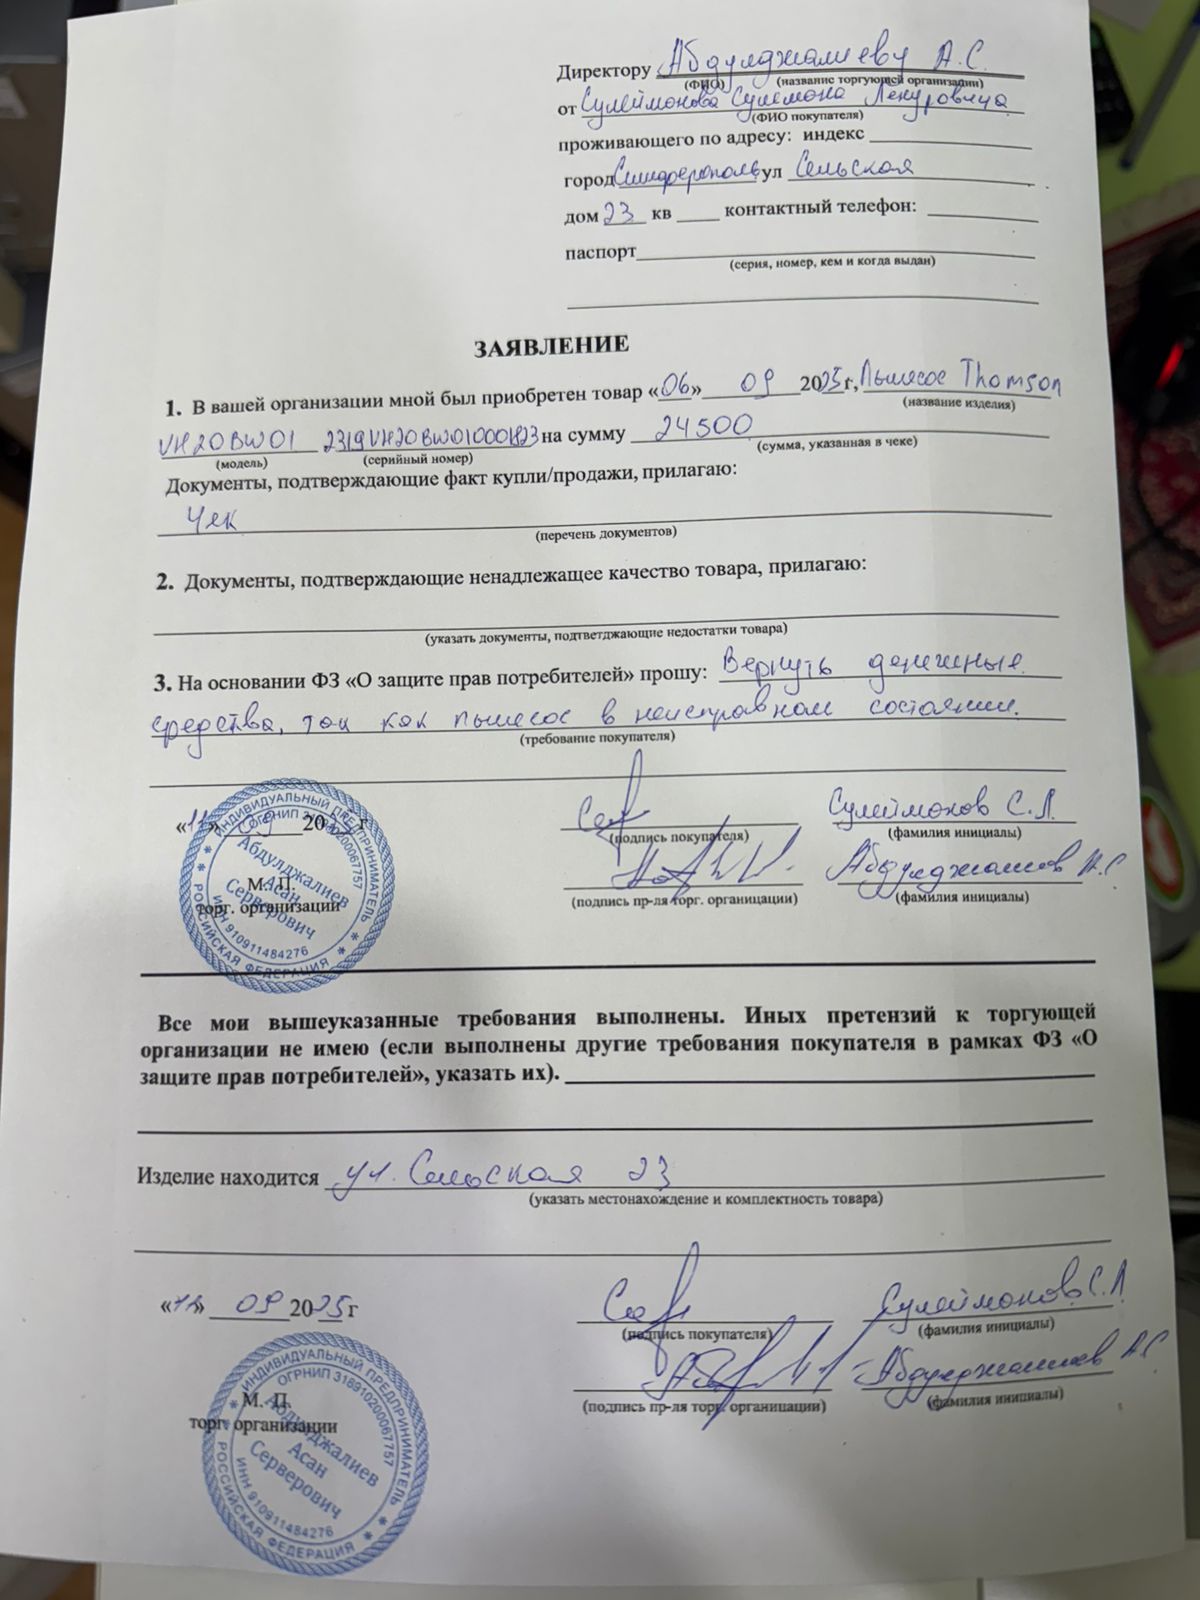 Директору Абдулджалиеву А.С.
(ФИО) (название торгующей организации)
от Сулейманова Сулемона Ленуровича
(ФИО покупателя)
проживающего по адресу: индекс
город Симферополь ул Сельская
дом 23 кв ____ контактный телефон:
паспорт
(серия, номер, кем и когда выдан)
ЗАЯВЛЕНИЕ
1. В вашей организации мной был приобретен товар «06» 09 2025г, Пылесос Thomson
(название изделия)
VH20BW01 2319VH20BW01000823 на сумму 24500
(модель) (серийный номер) (сумма, указанная в чеке)
Документы, подтверждающие факт купли/продажи, прилагаю:
Чек
(перечень документов)
2. Документы, подтверждающие ненадлежащее качество товара, прилагаю:
(указать документы, подтветджающие недостатки товара)
3. На основании ФЗ «О защите прав потребителей» прошу: Вернуть денежные
средства, так как пылесос в неисправном состоянии.
(требование покупателя)
«11» 09 2025 г
(подпись покупателя)
Сулейманов С.Л.
(фамилия инициалы)
Абдулджалиев А.С
(подпись пр-ля торг. органицации) (фамилия инициалы)
М. П.
торг. организации
ИНДИВИДУАЛЬНЫЙ ПРЕДПРИНИМАТЕЛЬ
ОГРНИП 318910200067757
Абдулджалиев
Асан
Серверович
ИНН 910911484276
РОССИЙСКАЯ ФЕДЕРАЦИЯ
Все мои вышеуказанные требования выполнены. Иных претензий к торгующей
организации не имею (если выполнены другие требования покупателя в рамках ФЗ «О
защите прав потребителей», указать их).
Изделие находится ул. Сельская 23
(указать местонахождение и комплектность товара)
09 2025г
Сулейманов С.Л
(подпись покупателя) (фамилия инициалы)
Абдулджалиев А.С
(подпись пр-ля торг. органицации) (фамилия инициалы)
М. П.
торг. организации
ИНДИВИДУАЛЬНЫЙ ПРЕДПРИНИМАТЕЛЬ
ОГРНИП 318910200067757
Абдулджалиев
Асан
Серверович
ИНН 910911484276
РОССИЙСКАЯ ФЕДЕРАЦИЯ